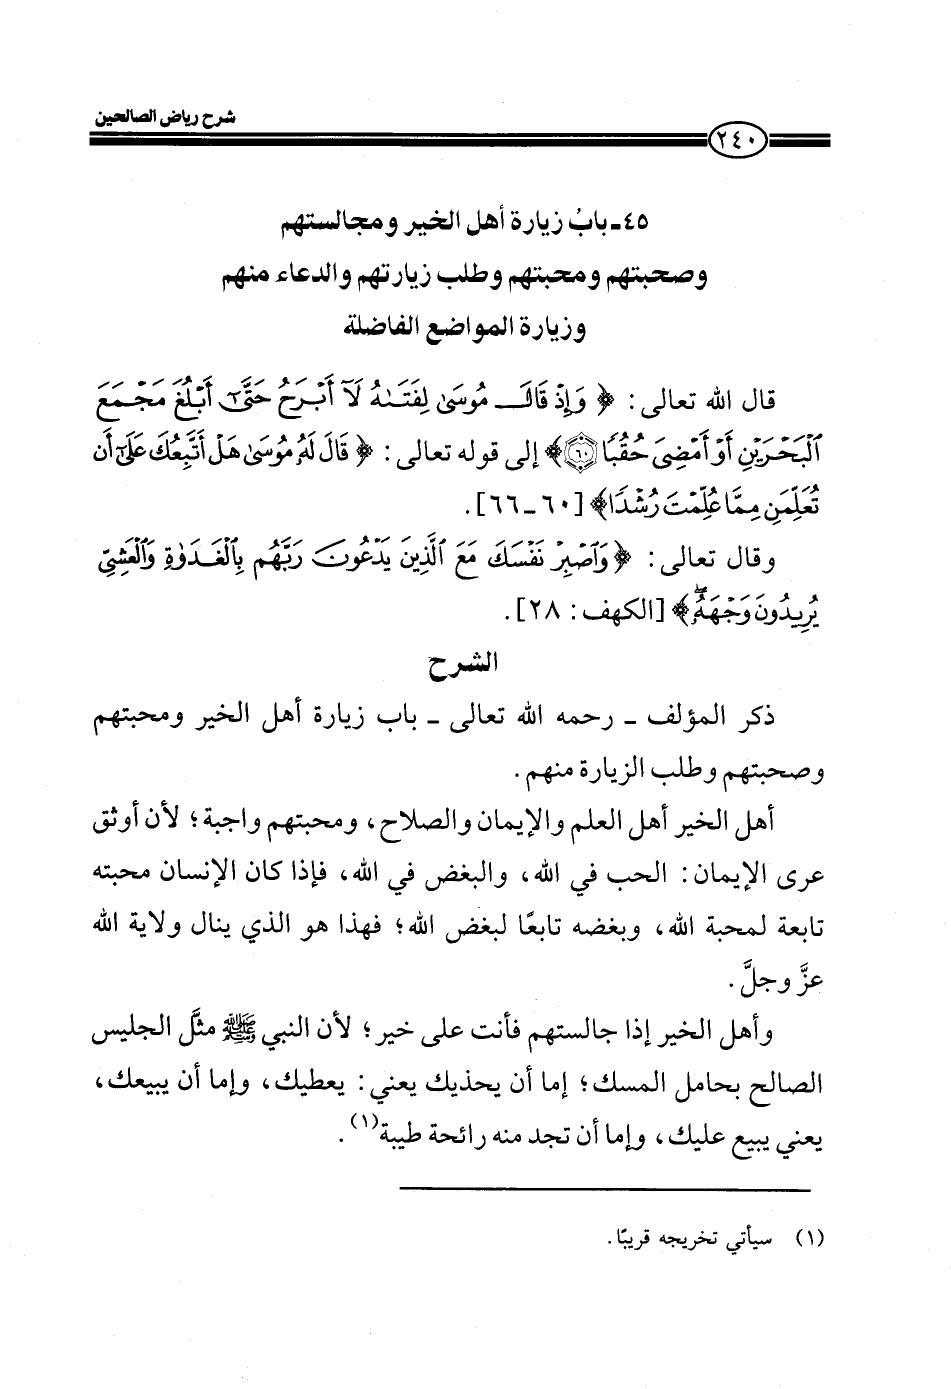 شرح رياض الصالحين
٢٤٠
٤٥ـ بابُ زيارة أهل الخير ومجالستهم
وصحبتهم ومحبتهم وطلب زيارتهم والدعاء منهم
وزيارة المواضع الفاضلة
قال الله تعالى: ﴿ وَإِذْ قَالَ مُوسَىٰ لِفَتَىٰهُ لَآ أَبْرَحُ حَتَّىٰٓ أَبْلُغَ مَجْمَعَ
ٱلْبَحْرَيْنِ أَوْ أَمْضِىَ حُقُبًا ۝٦٠﴾ إلى قوله تعالى: ﴿ قَالَ لَهُۥ مُوسَىٰ هَلْ أَتَّبِعُكَ عَلَىٰٓ أَن
تُعَلِّمَنِ مِمَّا عُلِّمْتَ رُشْدًا﴾ [٦٠ ـ ٦٦].
وقال تعالى: ﴿وَٱصْبِرْ نَفْسَكَ مَعَ ٱلَّذِينَ يَدْعُونَ رَبَّهُم بِٱلْغَدَوٰةِ وَٱلْعَشِىِّ
يُرِيدُونَ وَجْهَهُۥۖ﴾ [الكهف: ٢٨].
الشرح
ذكر المؤلف ـ رحمه الله تعالى ـ باب زيارة أهل الخير ومحبتهم
وصحبتهم وطلب الزيارة منهم.
أهل الخير أهل العلم والإيمان والصلاح، ومحبتهم واجبة؛ لأن أوثق
عرى الإيمان: الحب في الله، والبغض في الله، فإذا كان الإنسان محبته
تابعة لمحبة الله، وبغضه تابعًا لبغض الله؛ فهذا هو الذي ينال ولاية الله
عزَّ وجلَّ.
وأهل الخير إذا جالستهم فأنت على خير؛ لأن النبي ﷺ مثَّل الجليس
الصالح بحامل المسك؛ إما أن يحذيك يعني: يعطيك، وإما أن يبيعك،
يعني يبيع عليك، وإما أن تجد منه رائحة طيبة(١).
(١) سيأتي تخريجه قريبًا.